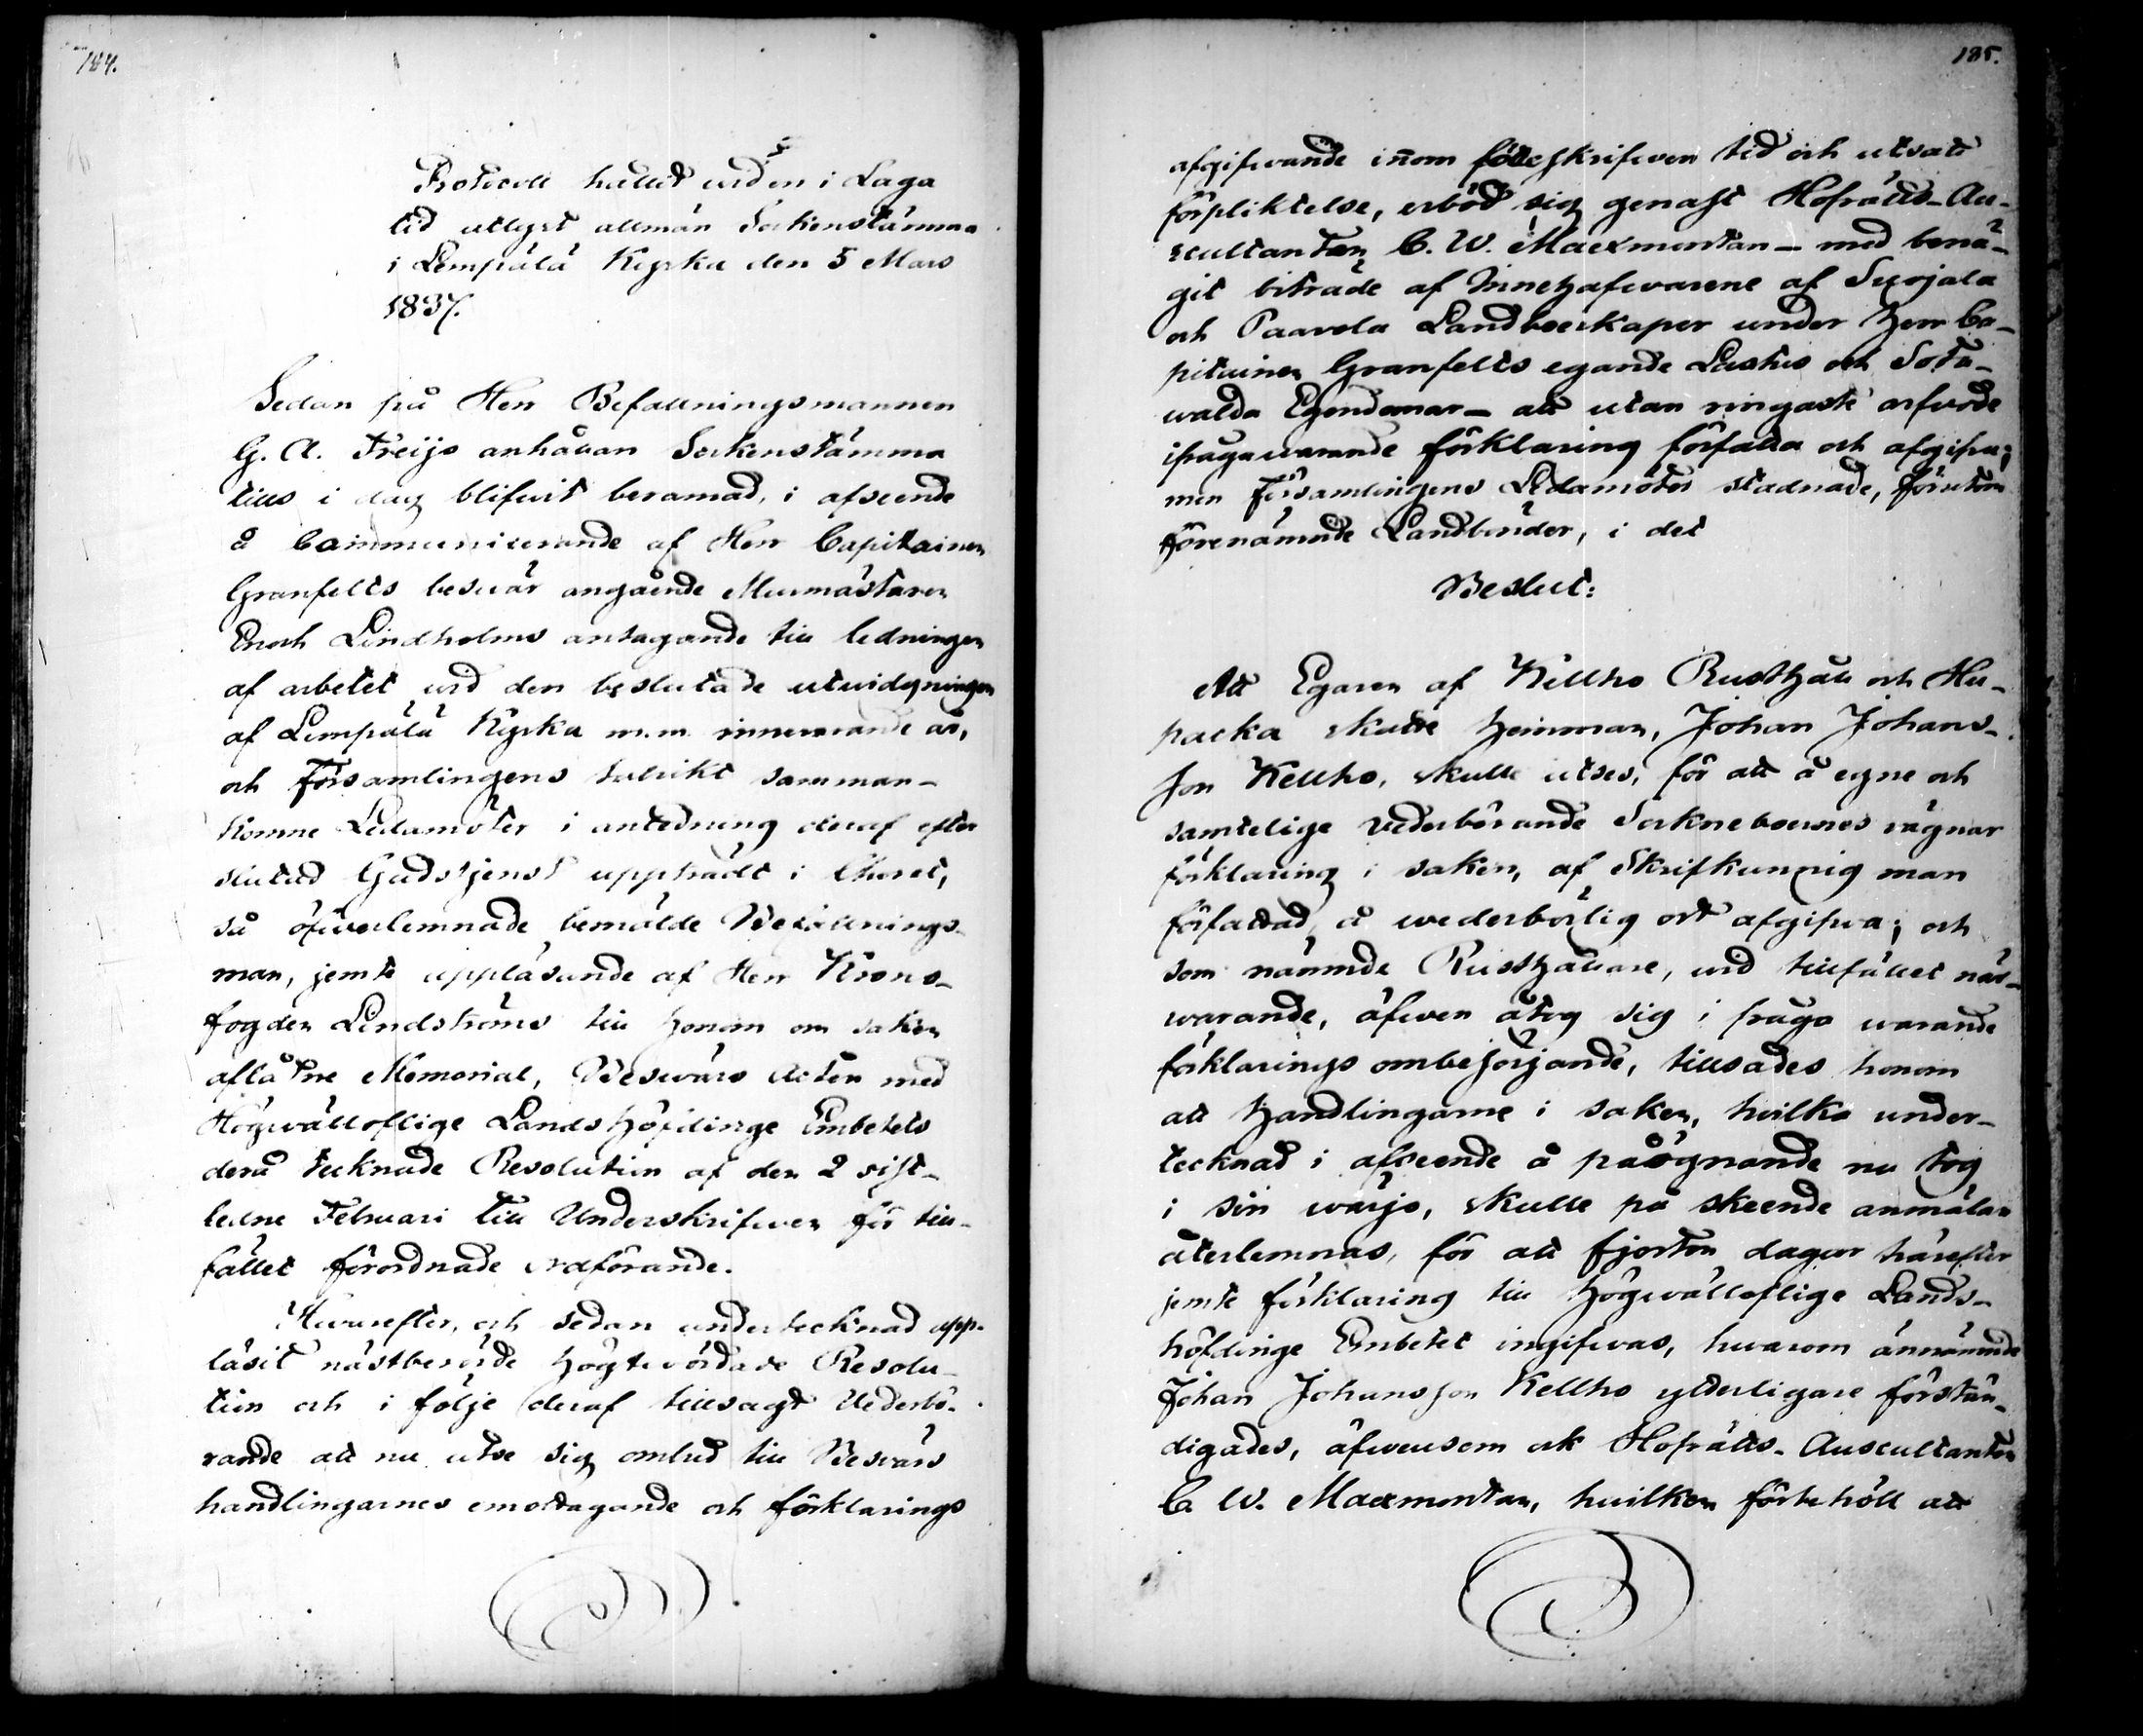 184.
Protocoll hållet wid en i Laga
tid utlyst allmän Sockenstämma
i Lempälä Kyrka den 5 Mars
1837.
Sedan på Herr Befallningsmannen
G. A. Freijs anhållan Sockenstämma
tills i dag blifwit beramad, i afseende
å Communicerande af Herr Capitainen
Granfelts beswär angående Murmästaren
Enoch Lindholms antagande till ledningen
af arbetet wid den beslutade utwidgningen
af Lempälä Kyrka m.m. innewarande år,
och Församlingens talrikt samman-
komne Ledamöter i anledning deraf efter
slutad Gudstjenst uppträdt i Choret,
så öfwerlemnade bemälde Befallnings-
man, jemte uppläsande af Herr Krono-
fogden Lindströms till honom om saken
aflåtne Memorial, Beswärs Acten med
Högwälloflige Landshöfdinge Embetets
derå tecknade Resolution af den 2 sist-
ledne Februari till Underskrifwen för till-
fället förordnade ordförande.
Hwarefter, och sedan undertecknad upp-
läsit nästberörde högtwördade Resolu-
tion och i följe deraf tillsagt Vederbö-
rande att nu utse sig ombud till Beswärs
handlingarnes emottagande och förklarings
185.
afgifwande inom föreskrifwen tid och utsatt
förpliktelse, erböd sig genast Hofrätts-Au-
scultanten C. W. Maexmontan - med benä-
git biträde af Innehafwarene af Suojala
och Paavola Landboerkaper under Herr Ca-
pitainen Granfelts egande Lastus och Sota-
walda Egendomar - att utan ringaste arfwode
ifrågawarande förklaring författa och afgifwa;
men Församlingens Ledamöter stadnade, förutom
förenämnde Landbönder, i det
Beslut:
Att Egaren af Kellho Rusthåll och Hu-
packa skatte Hemman, Johan Johans-
son Kellho, skulle utses, för att å egne och
samtelige vederbörande Socknеboernes vägnar
förklaring i saken, af Skrifkunnig man
författad, å wederbörlig ort afgifwa; och
som nämnde Rusthållare, wid tillfället när-
warande, äfwen åtog sig i fråga warande
förklarings ombesörjande, tillsades honom
att Handlingarne i saken, hvilka under-
tecknad i afseende å påögnande nu tog
i sin wärjo, skulle på skeende anmälan
återlemnas, för att fjorton dagar härefter
jemte förklaring till Högwälloflige Lands-
höfdinge Embetet ingifwas, hwarom ännämnde
Johan Johansson Kellho ytterligare förstän-
digades, äfwensom ock Hofrätts-Auscultanten
C. W. Maexmontan, hvilken förbehöll att